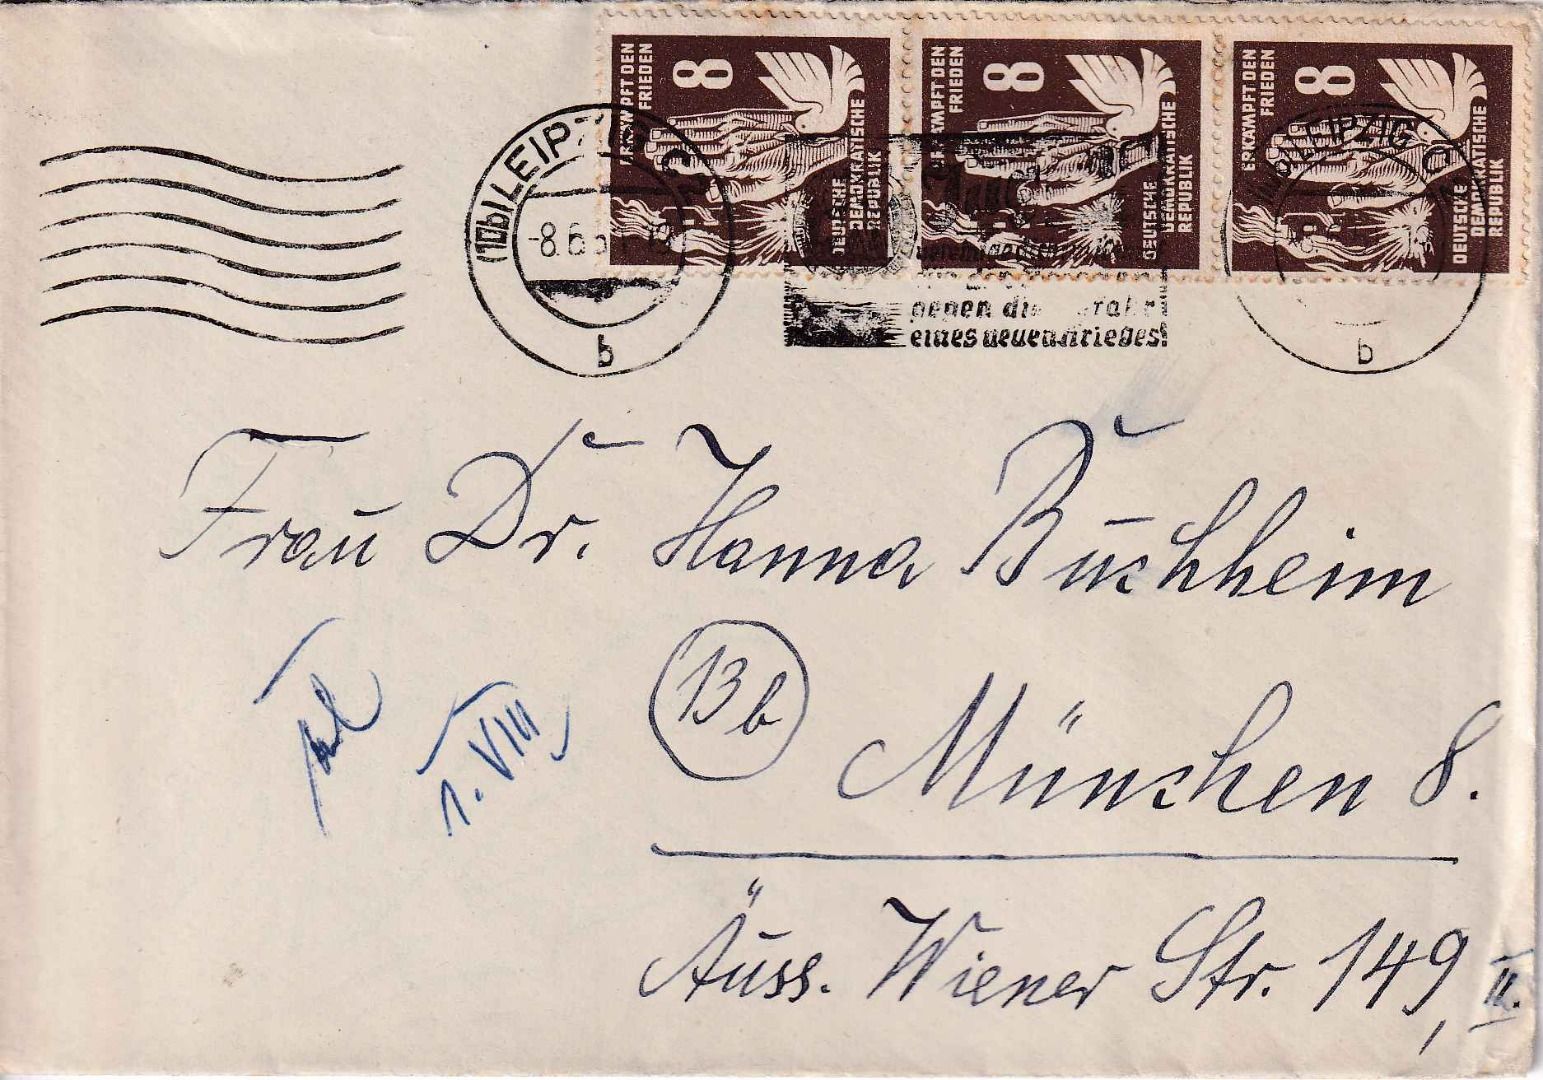 ERKÄMPFT DEN FRIEDEN
8
DEUTSCHE DEMOKRATISCHE REPUBLIK
ERKÄMPFT DEN FRIEDEN
8
DEUTSCHE DEMOKRATISCHE REPUBLIK
ERKÄMPFT DEN FRIEDEN
8
DEUTSCHE DEMOKRATISCHE REPUBLIK
(10b) LEIPZIG C1
-8.6.51
b
gegen die Gefahr
eines neuen Krieges!
(10b) LEIPZIG C1
b
Frau Dr. Hanna Buchheim
13b
München 8.
1. VIII
Äuss. Wiener Str. 149, II.